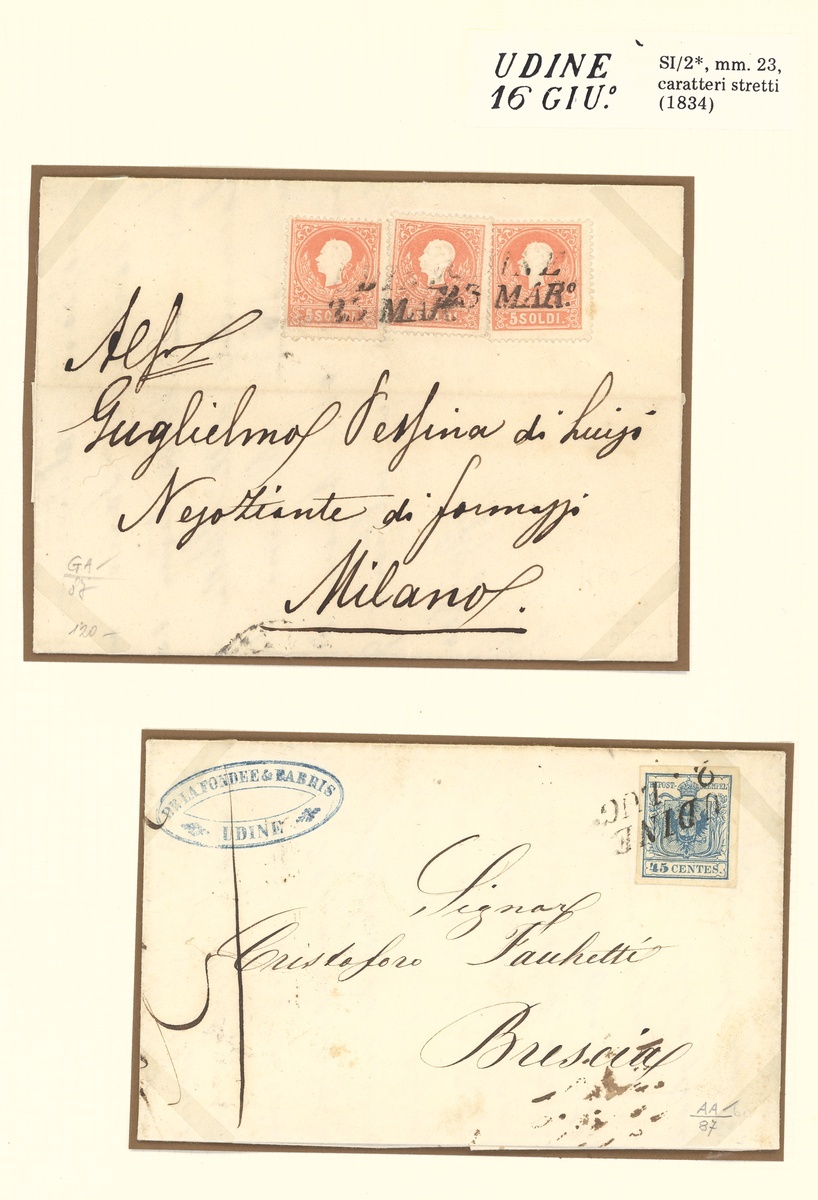 UDINE
16 GIU.º
SI/2*, mm. 23,
caratteri stretti
(1834)
INE
25 MAR. 23 MAR.º
5 SOLDI. 5 SOLDI.
Guglielmo Pessina di Luigi
Negoziante di formaggi
Milano.
GA
87
120-
DE LA FONDEE & BARRIS
UDINE
KKPOST-STEMPEL
45 CENTES.
UDINE
Signor
Cristoforo Fachetti
Brescia
AA
87